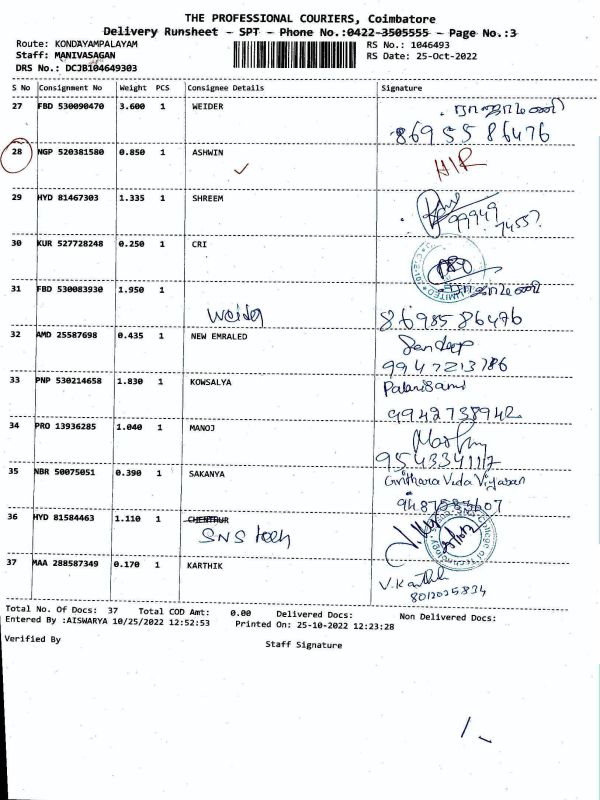 THE PROFESSIONAL COURIERS, Coimbatore
Delivery Runsheet - SPT - Phone No.:0422-3505555 - Page No.:3
Route: KONDAYAMPALAYAM RS No.: 1046493
Staff: MANIVASAGAN RS Date: 25-Oct-2022
DRS No.: DCJB104649303
S No Consignment No Weight PCS Consignee Details Signature
27 FBD 530090470 3.600 1 WEIDER
86955 86476
28 NGP 520381580 0.850 1 ASHWIN
29 HYD 81467303 1.335 1 SHREEM
99949
74557
30 KUR 527728248 0.250 1 CRI
31 FBD 530083930 1.950 1
Weider 8698586476
32 AMD 25587698 0.435 1 NEW EMRALED Sandeep
9947213786
33 PNP 530214658 1.830 1 KOWSALYA Palanisami
9942738942
34 PRO 13936285 1.040 1 MANOJ
9543341117
35 NBR 50075051 0.390 1 SAKANYA
9487583607
36 HYD 81584463 1.110 1 CHENTHUR
SNS tech
37 MAA 288587349 0.170 1 KARTHIK V.Karthik
8012025834
Total No. Of Docs: 37 Total COD Amt: 0.00 Delivered Docs: Non Delivered Docs:
Entered By :AISWARYA 10/25/2022 12:52:53 Printed On: 25-10-2022 12:23:28
Verified By Staff Signature